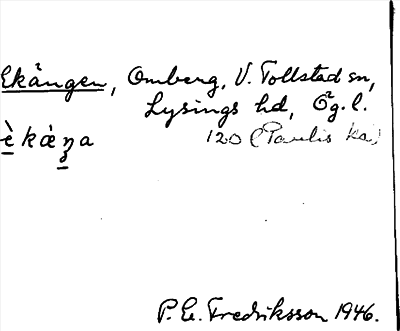 Ekängen, Omberg, V. Tollstad sn,
Lysings hd, Ög. l.
è kàŋa 120 (Paulis ka)
P. E. Fredriksson 1946.